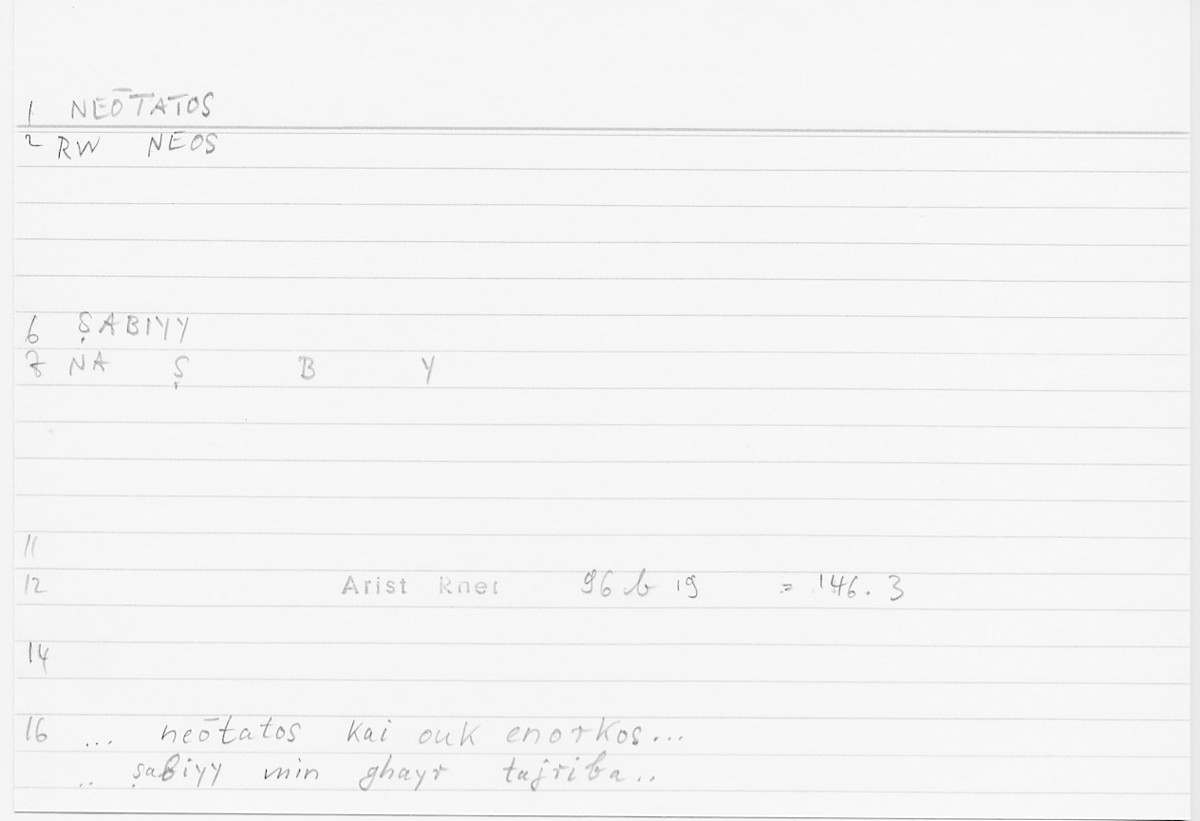 1 NEŌTATOS
2 RW NEOS
6 ṢABIYY
7 NA Ṣ B Y
11
12 Arist Rhet 96 b 19 = 146.3
14
16 ... neōtatos kai ouk enorkos...
.. ṣabiyy min ghayr tajriba..